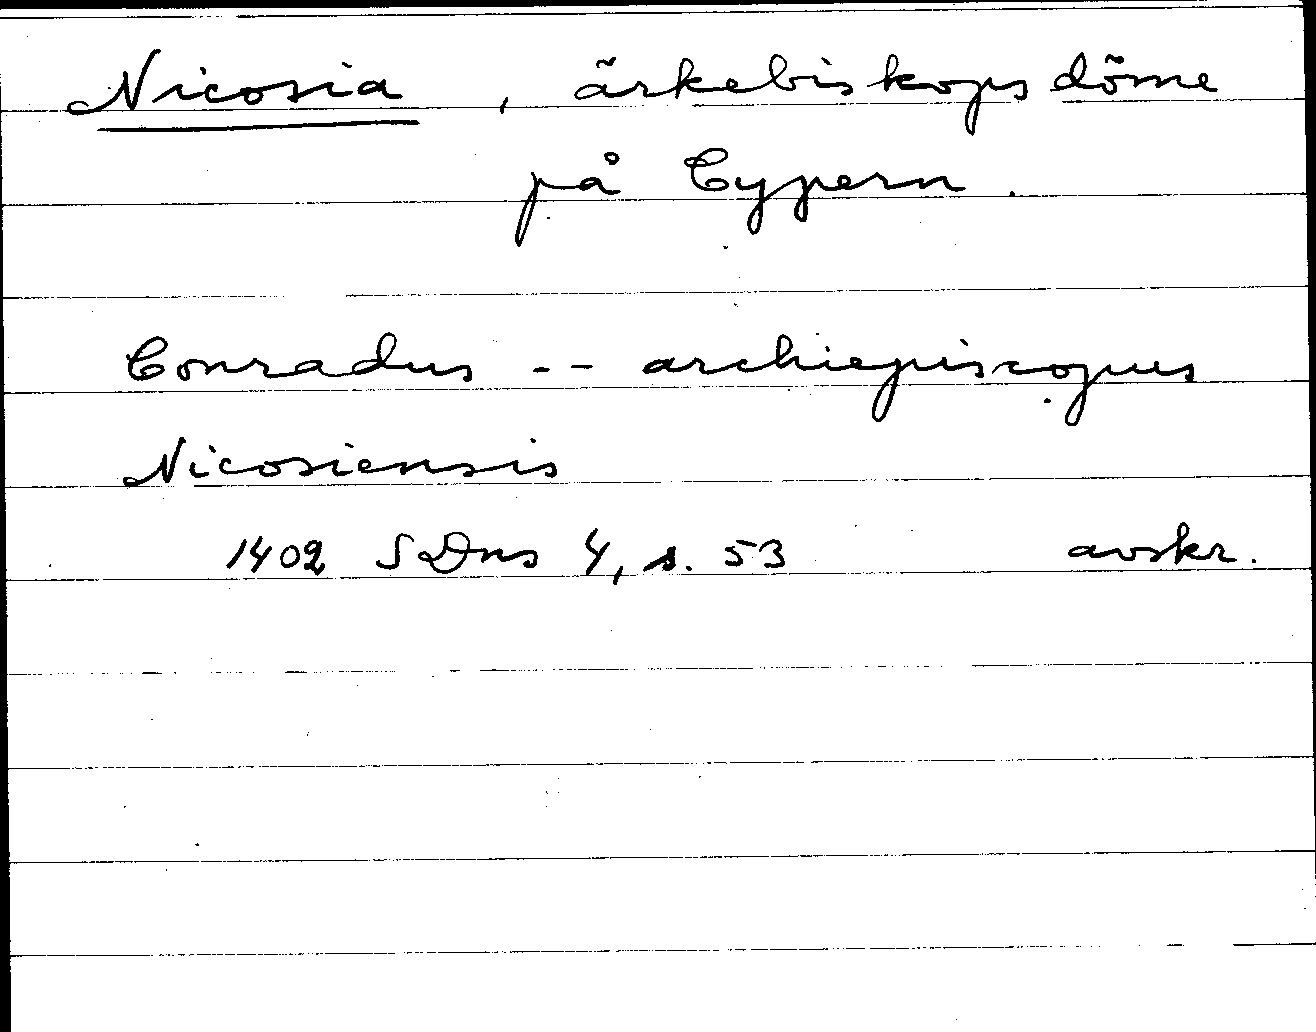 Nicosia , ärkebiskopsdöme
på Cypern .
Conradus -- archiepiscopus
Nicosiensis
1402 SDns 4, s. 53 avskr.